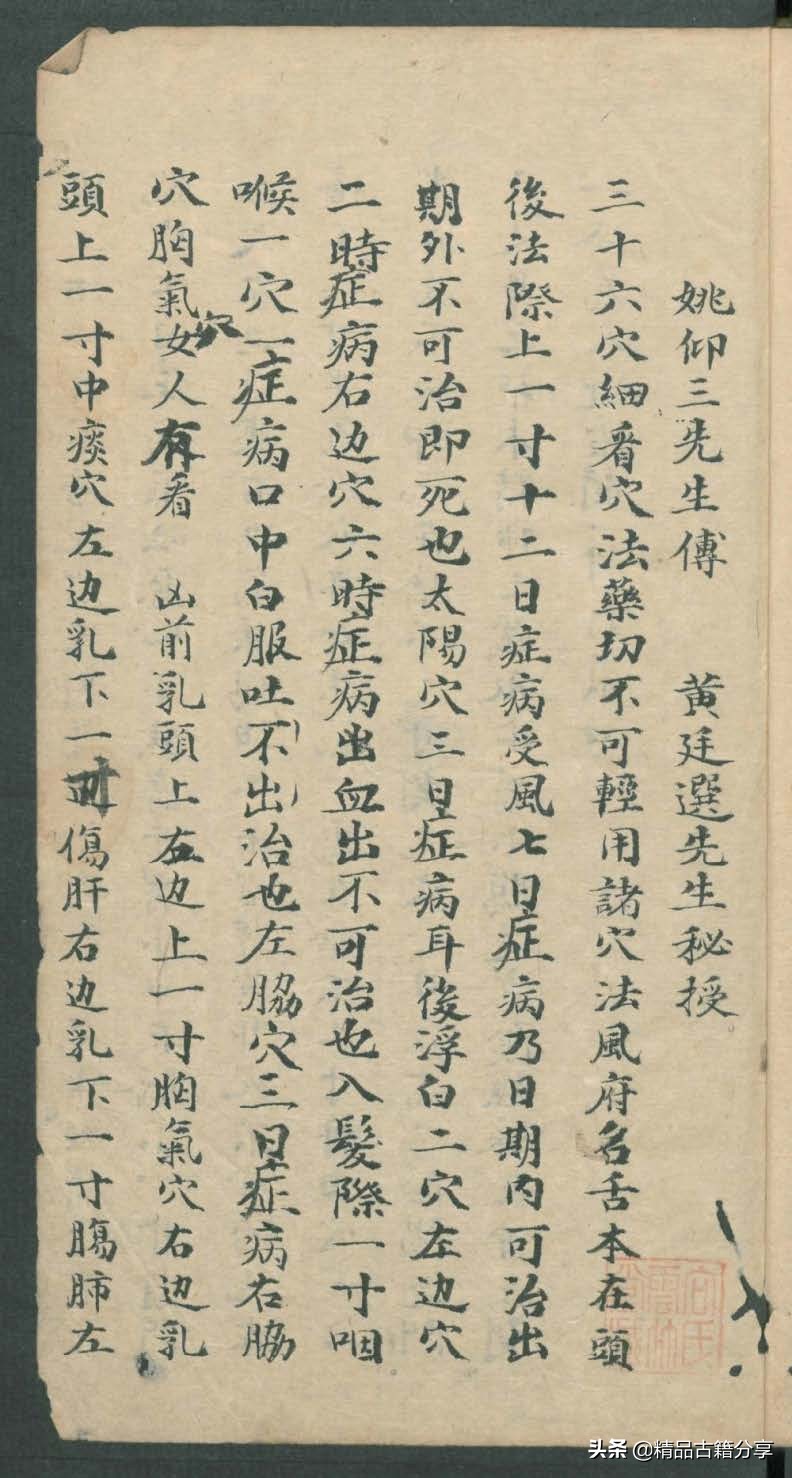 姚仰三先生傅　黄廷選先生秘授
三十六穴細看穴法藥切不可輕用諸穴法風府名舌本在頭
後法際上一寸十二日症病受風七日症病乃日期內可治出
期外不可治即死也太陽穴三日症病耳後浮白二穴左边穴
二時症病右边穴六時症病出血出不可治也入髮際一寸咽
喉一穴一症病口中白服吐不出治也左脇穴三日症病右脇
穴胸氣穴女人有看　凶前乳頭上右边上一寸胸氣穴右边乳
頭上一寸中痰穴左边乳下一寸傷肝右边乳下一寸腸肺左
头条 @精品古籍分享